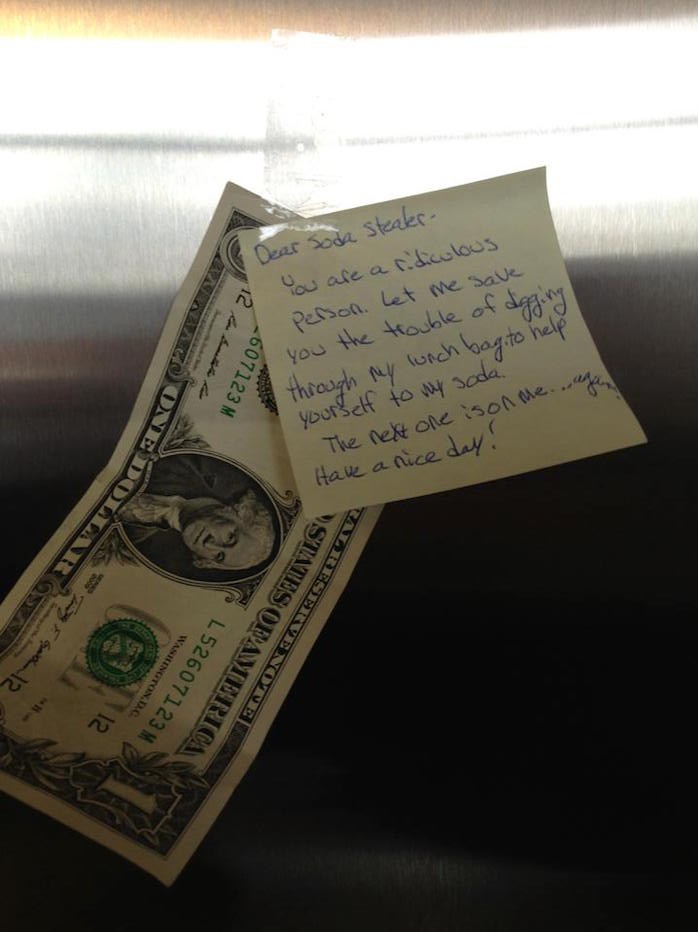 Dear Soda Stealer-
You are a ridiculous
person. Let me save
you the trouble of digging
through my lunch bag to help
yourself to my soda.
The next one is on me....again.
Have a nice day!
607123M
12
ONE DOLLAR
FEDERAL RESERVE NOTE
STATES OF AMERICA
L52607123M
WASHINGTON, D.C.
12
12
SERIES
2009
ONE
1